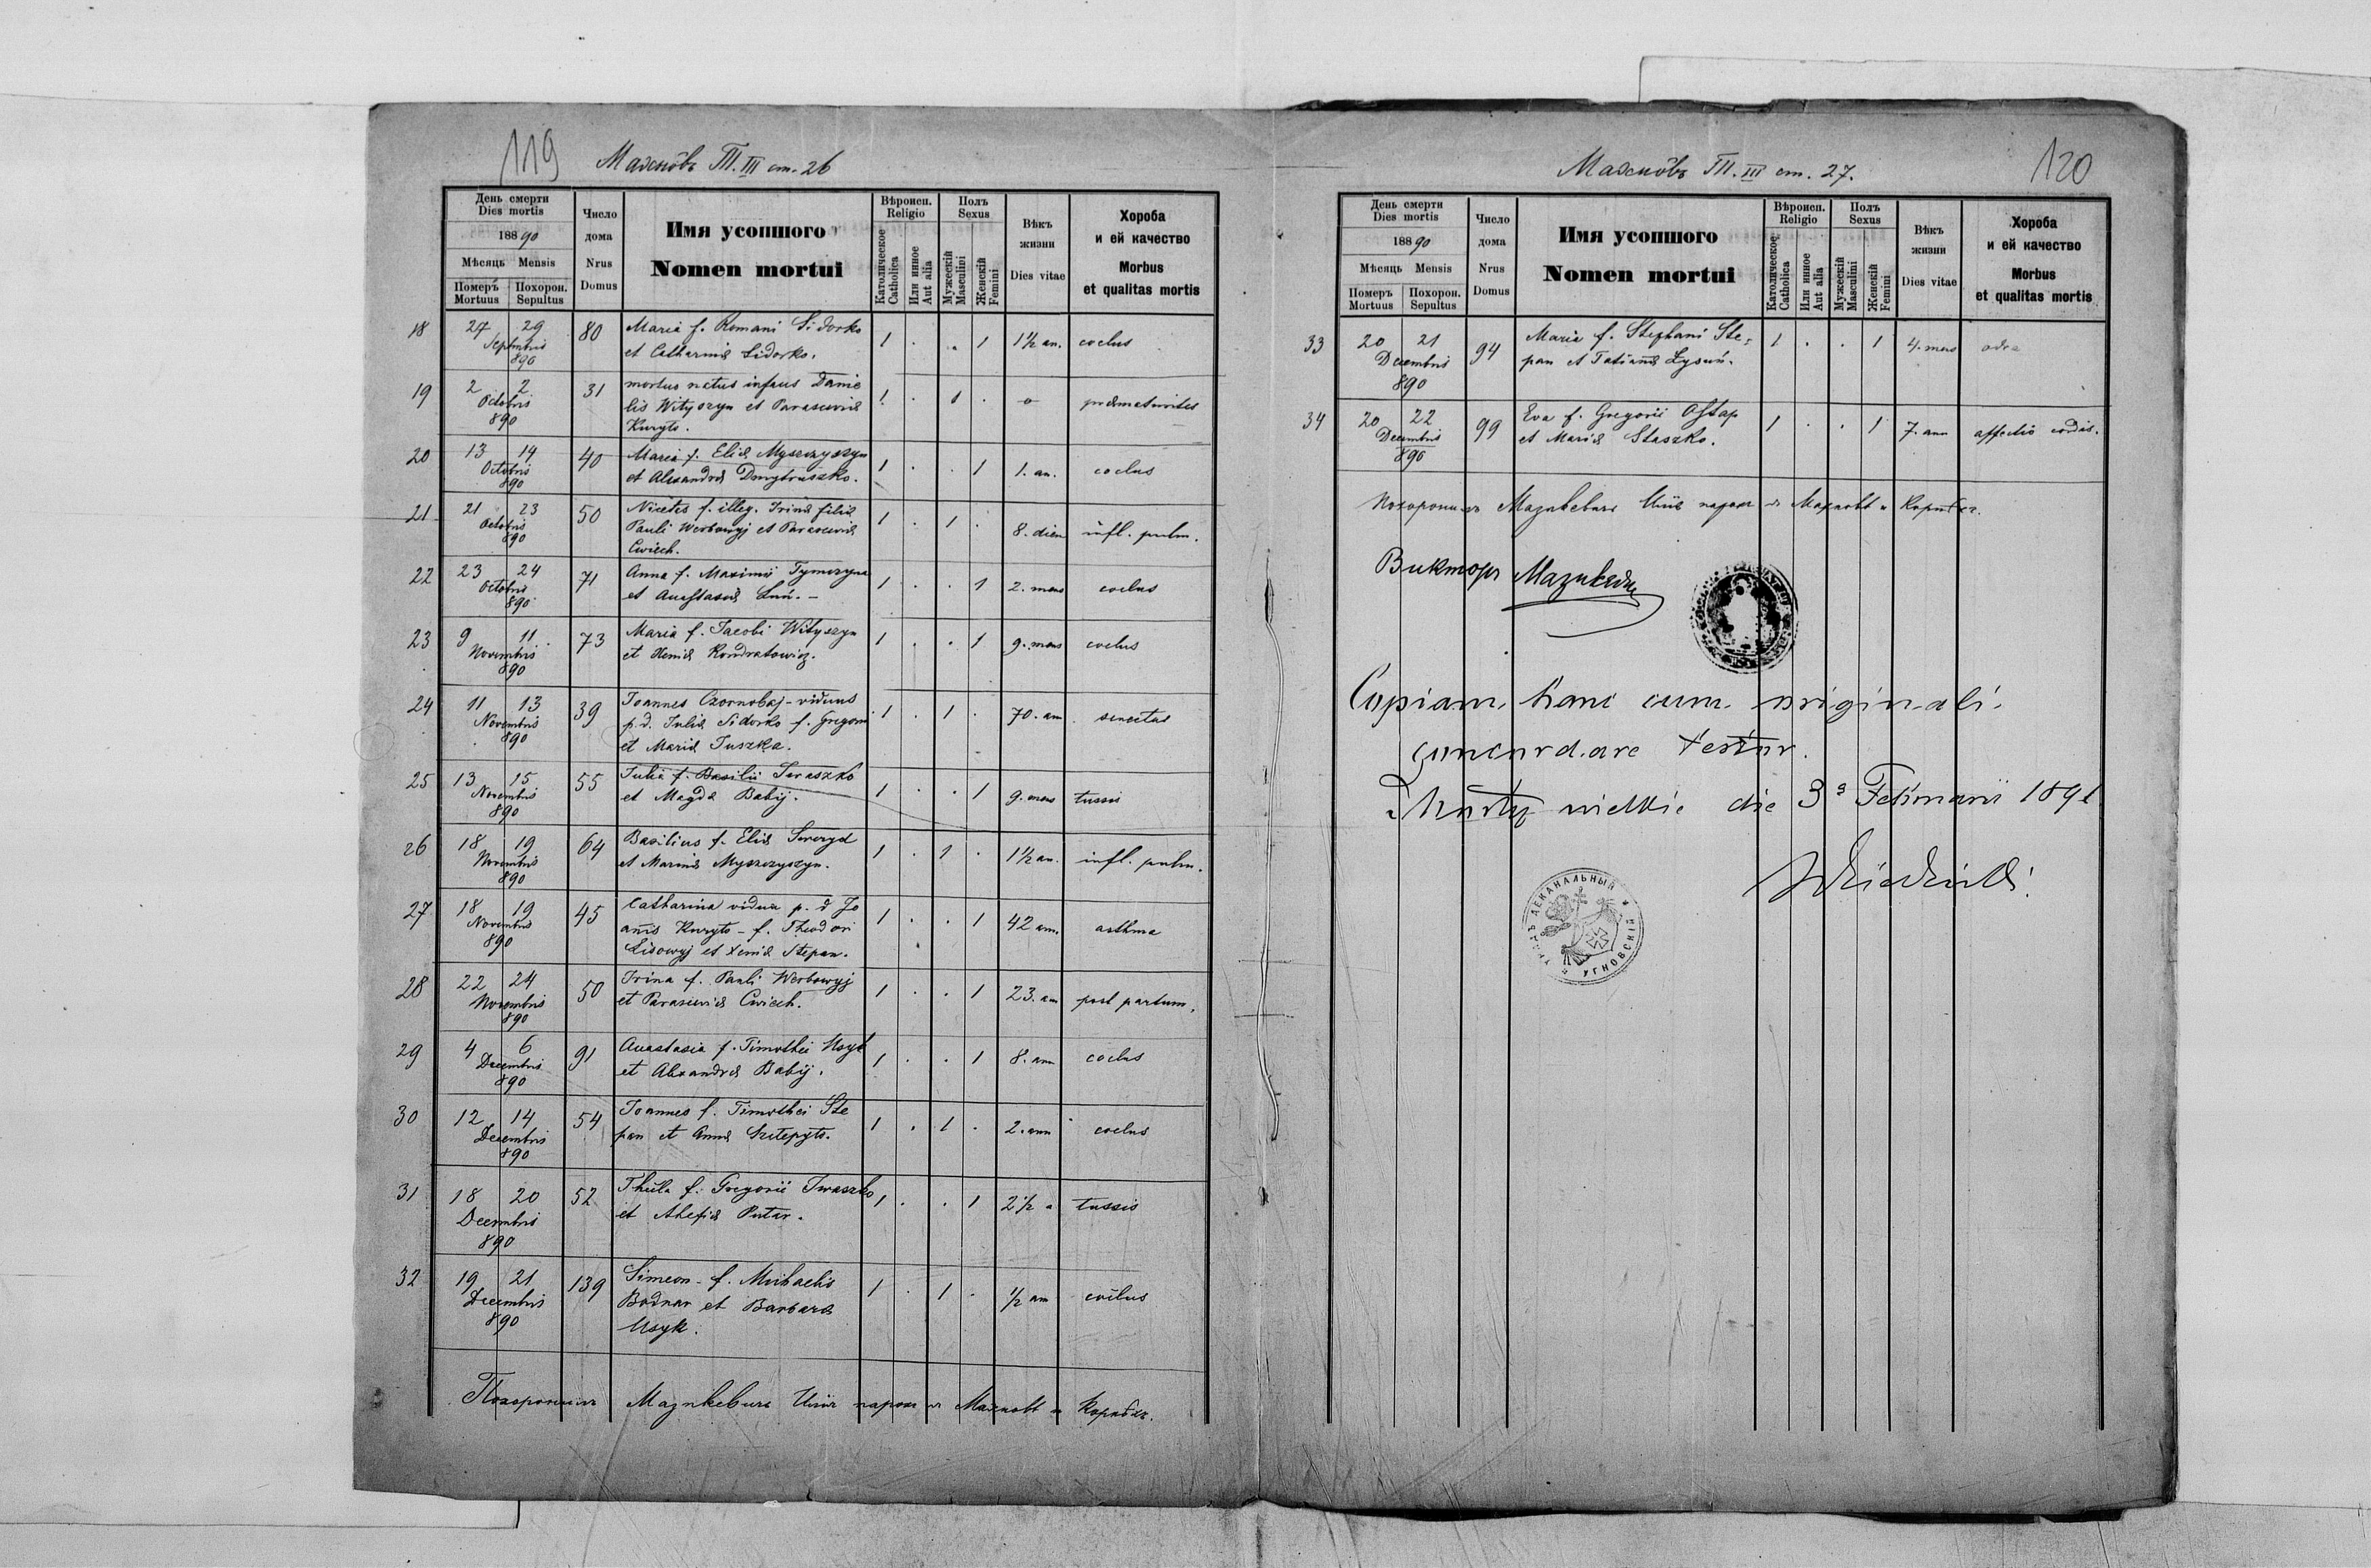 119
Махнôвъ Т. III ст. 26
День смерти
Dies mortis
1890
Мѣсяць Mensis
Померъ Похорон.
Mortuus Sepultus
Число дома
Nrus Domus
Имя усопшого
Nomen mortui
Вѣроисп.
Religio
Католическое
Catholica
Или инное
Aut alia
Полъ
Sexus
Мужескій
Masculini
Женскій
Femini
Вѣкъ жизни
Dies vitae
Хороба
и ей качество
Morbus
et qualitas mortis
18 27 29 80 Maria f. Romani Sidorko 1 . . 1 1½ an. coclus
Septembris et Catharinæ Sidorko.
890
19 2 2 31 mortuo natus infans Danie 1 . 1 . o præmaturitas
Octobris lis Wityszyn et Parasceviæ
890 Kuryto.
20 13 14 40 Maria f. Eliæ Myszczyszyn 1 . . 1 1. an. coclus
Octobris et Alexandræ Dmytruszko.
890
21 21 23 50 Nicetas f. illeg. Irinæ filiæ 1 . 1 . 8. dien infl. pulm.
Octobris Pauli Werbowyj et Parasceviæ
890 Cwiech.
22 23 24 71 Anna f. Maximi Tymczyna 1 . . 1 2. mens coclus
Octobris et Anastasiæ
890
23 9 11 73 Maria f. Jacobi Wityszyn 1 . . 1 9. mens coclus
Novembris et Xeniæ Kondratowicz.
890
24 11 13 39 Joannes Czornobaj - viduus 1 . 1 . 70. ann senectus
Novembris p. d. Juliæ Sidorko f. Gregorii
890 et Mariæ Juszka.
25 13 15 55 Julia f. Basilii Iwaszko 1 . . 1 9. mens tussis
Novembris et Magdæ Babij.
890
26 18 19 64 Basilius f. Eliæ 1 . 1 . 1½ an. infl. pulm.
Novembris et Marinæ Myszczyszyn.
890
27 18 19 45 Catharina vidua p. d Jo 1 . . 1 42 ann. asthma
Novembris annis Kuryto - f. Theodori
890 Lisowyj et Xeniæ Stepan.
28 22 24 50 Irina f. Pauli Werbowyj 1 . . 1 23. ann post partum.
Novembris et Parasceviæ Cwiech.
890
29 4 6 91 Anastasia f. Timothei Usyk 1 . . 1 8. ann coclus
Decembris et Alexandræ Babij.
890
30 12 14 54 Joannes f. Timothei Ste 1 . 1 . 2. ann coclus
Decembris pan et Annæ Szctepyto.
890
31 18 20 52 Thecla f. Gregorii Iwaszko 1 . . 1 2½ a tussis
Decembris et Ahafiæ Putar.
890
32 19 21 139 Simeon - f. Michaelis 1 . 1 . ½ ann coclus
Decembris Bodnar et Barbaræ
890 Usyk.
Похоронилъ Мазикевичъ парохъ Махновѣ и
120
Махнôвъ Т. III ст. 27.
День смерти
Dies mortis
1890
Мѣсяць Mensis
Померъ Похорон.
Mortuus Sepultus
Число дома
Nrus Domus
Имя усопшого
Nomen mortui
Вѣроисп.
Religio
Католическое
Catholica
Или инное
Aut alia
Полъ
Sexus
Мужескій
Masculini
Женскій
Femini
Вѣкъ жизни
Dies vitae
Хороба
и ей качество
Morbus
et qualitas mortis
33 20 21 94 Maria f. Stephani Ste- 1 . . 1 4. mens
Decembris pan et Tatianæ Łysuń.
890
34 20 22 99 Eva f. Gregorii Ostap 1 . . 1 7. ann affectio cordis.
Decembris et Mariæ Staszko.
890
Похоронилъ Мазикевичъ парохъ Махновѣ и
Викторъ Мазикевичъ
Copiam hanc cum originali
concordare testor.
wielkie die 3ª Februarii 1891
УРЯДЪ ДЕКАНАЛЬНЫЙ УГНОВСКІЙ